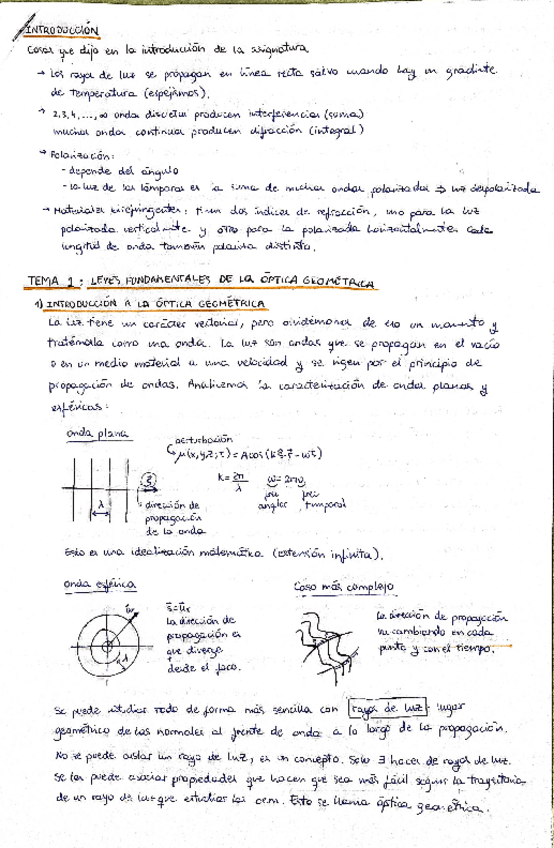 INTRODUCCIÓN
Cosas que dijo en la introducción de la asignatura
→ Los rayos de luz se propagan en línea recta salvo cuando hay un gradiente
de temperatura (espejismos).
→ 2,3,4,...,∞ ondas discretas producen interferencias (suma)
muchas ondas continuas producen difracción (integral)
→ Polarización:
- depende del ángulo
- La luz de las lámparas es la suma de muchas ondas polarizadas ⇒ luz despolarizada
→ Materiales birrefringentes: tienen dos índices de refracción, uno para la luz
polarizada verticalmente y otro para la polarizada horizontalmente. Cada
longitud de onda también polariza distinto.
TEMA 1: LEYES FUNDAMENTALES DE LA ÓPTICA GEOMÉTRICA
1) INTRODUCCIÓN A LA ÓPTICA GEOMÉTRICA
La luz tiene un carácter vectorial, pero olvidémonos de eso un momento y
tratémosla como una onda. La luz son ondas que se propagan en el vacío
o en un medio material a una velocidad y se rigen por el principio de
propagación de ondas. Analicemos la caracterización de ondas planas y
esféricas:
onda plana
perturbación
μ(x,y,z,t) = A cos (k ŝ·r̄ - ωt)
k = 2π/λ ω = 2πν
angular temporal
λ
ŝ
dirección de
propagación
de la onda
Esto es una idealización matemática (extensión infinita).
onda esférica
ūr
λ
s̄=ūr
La dirección de
propagación es
que diverge
desde el foco.
Caso más complejo
la dirección de propagación
va cambiando en cada
punto y con el tiempo.
Se puede estudiar todo de forma más sencilla con rayos de luz: lugar
geométrico de las normales al frente de onda a lo largo de la propagación.
No se puede aislar un rayo de luz, es un concepto. Solo ∃ haces de rayos de luz.
Se les puede asociar propiedades que hacen que sea más fácil seguir la trayectoria
de un rayo de luz que estudiar las o.e.m. Esto se llama óptica geométrica.